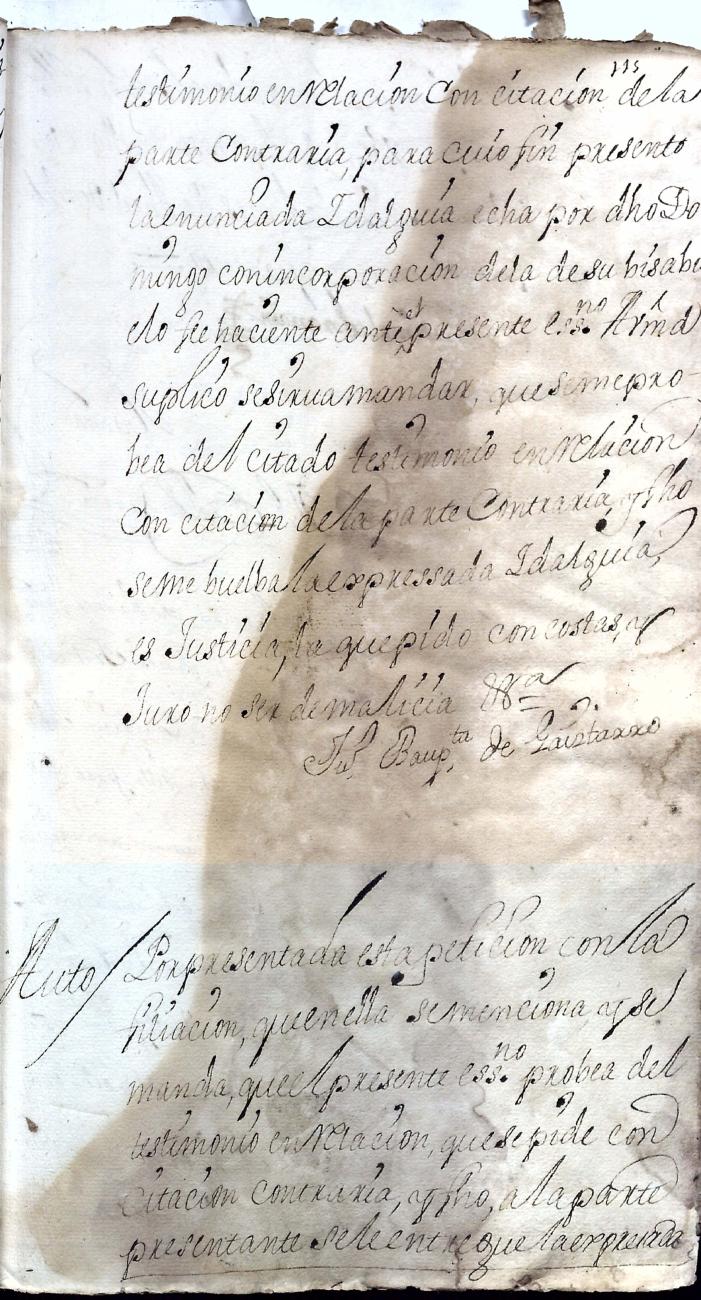 testimonio en Relacion Con citacion de la
parte Contraria, para cuio fin presento
la enunciada Idalguia echa por dho Do
mingo con incorporacion dela de su bisabu
elo feehaciente ante el presente ess.no A Vmd
suplico se sirua mandar, que se me pro-
bea del citado testimonio en Relacion
Con citacion de la parte Contraria, y fho
se me buelba la expressada Idalguia,
es Justicia, la que pido con costas, y
Juro no ser de malicia
Baup.ta de
Auto / Por presentada esta peticion con la
filiacion, que en ella se menciona y se
manda, que el presente ess.no probea del
testimonio en Relacion, que se pide con
Citacion contraria, y fho, a la parte
presentante se le entregue la expresada